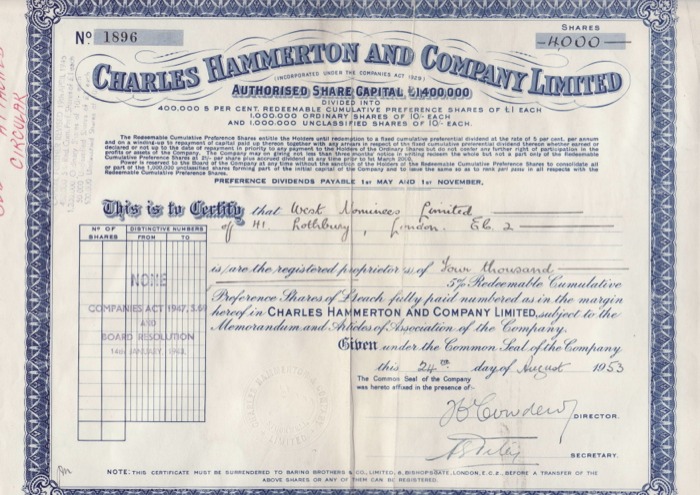 Nº 1896
SHARES
-4000-
CHARLES HAMMERTON AND COMPANY LIMITED
(INCORPORATED UNDER THE COMPANIES ACT 1929)
AUTHORISED SHARE CAPITAL £1,400,000
DIVIDED INTO
400,000 5 PER CENT. REDEEMABLE CUMULATIVE PREFERENCE SHARES OF £1 EACH
1,000,000 ORDINARY SHARES OF 10/- EACH
AND 1,000,000 UNCLASSIFIED SHARES OF 10/- EACH.
The Redeemable Cumulative Preference Shares entitle the Holders until redemption to a fixed cumulative preferential dividend at the rate of 5 per cent. per annum
and on a winding-up to repayment of capital paid up thereon together with any arrears in respect of the fixed cumulative preferential dividend thereon whether earned or
declared or not up to the date of repayment in priority to any payment to the Holders of the Ordinary Shares but do not confer any further right of participation in the
profits or assets of the Company. The Company may on giving not less than three months' notice in writing redeem the whole but not a part only of the Redeemable
Cumulative Preference Shares at 21/- per share plus accrued dividend at any time prior to 1st March 2000.
Power is reserved to the Board of the Company at any time without the sanction of the Holders of the Redeemable Cumulative Preference Shares to consolidate all
or part of the 1,000,000 unclassified shares forming part of the initial capital of the Company and to issue the same so as to rank pari passu in all respects with the
Redeemable Cumulative Preference Shares.
PREFERENCE DIVIDENDS PAYABLE 1ST MAY AND 1ST NOVEMBER.
This is to Certify that West Nominees Limited
of 41 Lothbury, London. E.C.2
Nº OF SHARES
DISTINCTIVE NUMBERS
FROM TO
is/are the registered proprietor(s) of Four thousand
5% Redeemable Cumulative
Preference Shares of £1 each, fully paid numbered as in the margin
hereof in CHARLES HAMMERTON AND COMPANY LIMITED, subject to the
Memorandum and Articles of Association of the Company.
NONE
COMPANIES ACT 1947, S.
AND
BOARD RESOLUTION
14TH JANUARY,
Given under the Common Seal of the Company
this 24th day of August 1953
The Common Seal of the Company
was hereto affixed in the presence of:-
DIRECTOR.
SECRETARY.
NOTE: THIS CERTIFICATE MUST BE SURRENDERED TO BARING BROTHERS & CO., LIMITED, 8, BISHOPSGATE, LONDON, E.C.2., BEFORE A TRANSFER OF THE
ABOVE SHARES OR ANY OF THEM CAN BE REGISTERED.
CIRCULAR